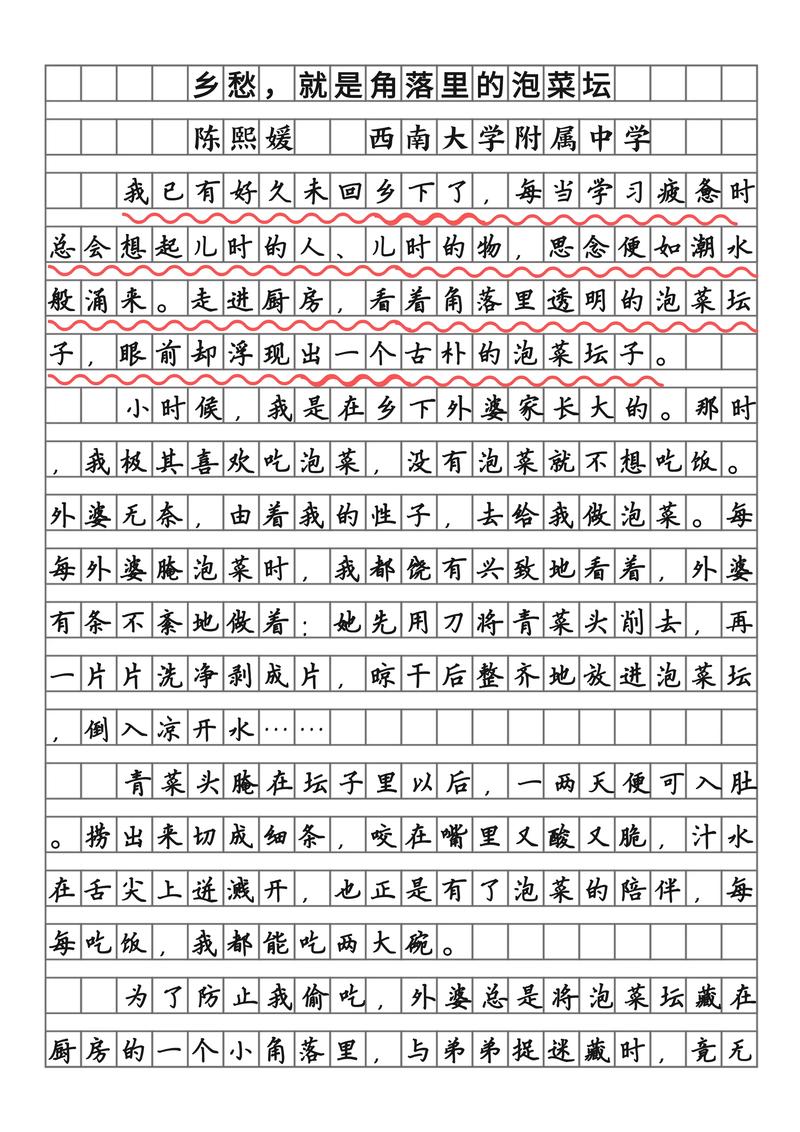 乡愁，就是角落里的泡菜坛
陈熙媛 西南大学附属中学
我已有好久未回乡下了，每当学习疲惫时
总会想起儿时的人、儿时的物，思念便如潮水
般涌来。走进厨房，看着角落里透明的泡菜坛
子，眼前却浮现出一个古朴的泡菜坛子。
小时候，我是在乡下外婆家长大的。那时
，我极其喜欢吃泡菜，没有泡菜就不想吃饭。
外婆无奈，由着我的性子，去给我做泡菜。每
每外婆腌泡菜时，我都饶有兴致地看着，外婆
有条不紊地做着：她先用刀将青菜头削去，再
一片片洗净剥成片，晾干后整齐地放进泡菜坛
，倒入凉开水……
青菜头腌在坛子里以后，一两天便可入肚
。捞出来切成细条，咬在嘴里又酸又脆，汁水
在舌尖上迸溅开，也正是有了泡菜的陪伴，每
每吃饭，我都能吃两大碗。
为了防止我偷吃，外婆总是将泡菜坛藏在
厨房的一个小角落里，与弟弟捉迷藏时，竟无